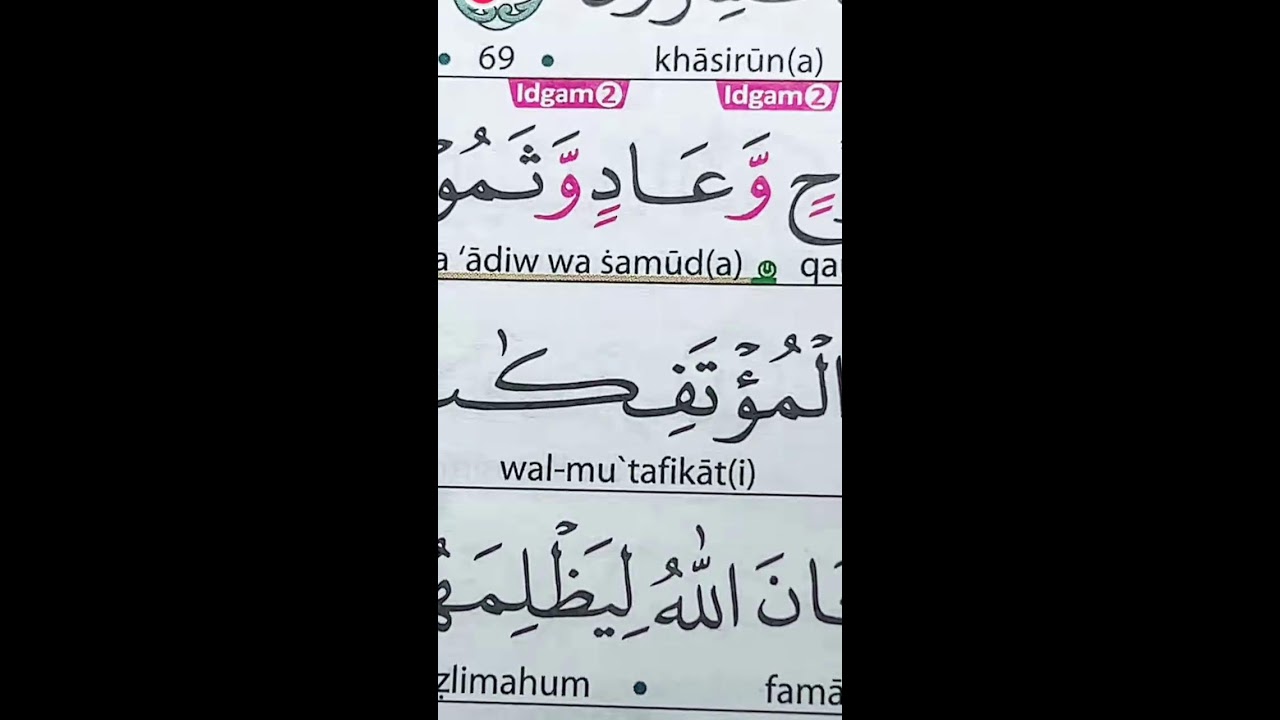 khāsirūn(a) • 69 •
Idgam2 Idgam2
حٍ وَّعَادٍ وَّثَمُوْ
a ‘ādiw wa ṡamūd(a) qa
الْمُؤْتَفِكٰ
wal-mu`tafikāt(i)
انَ اللّٰهُ لِيَظْلِمَهُ
ẓlimahum • famā